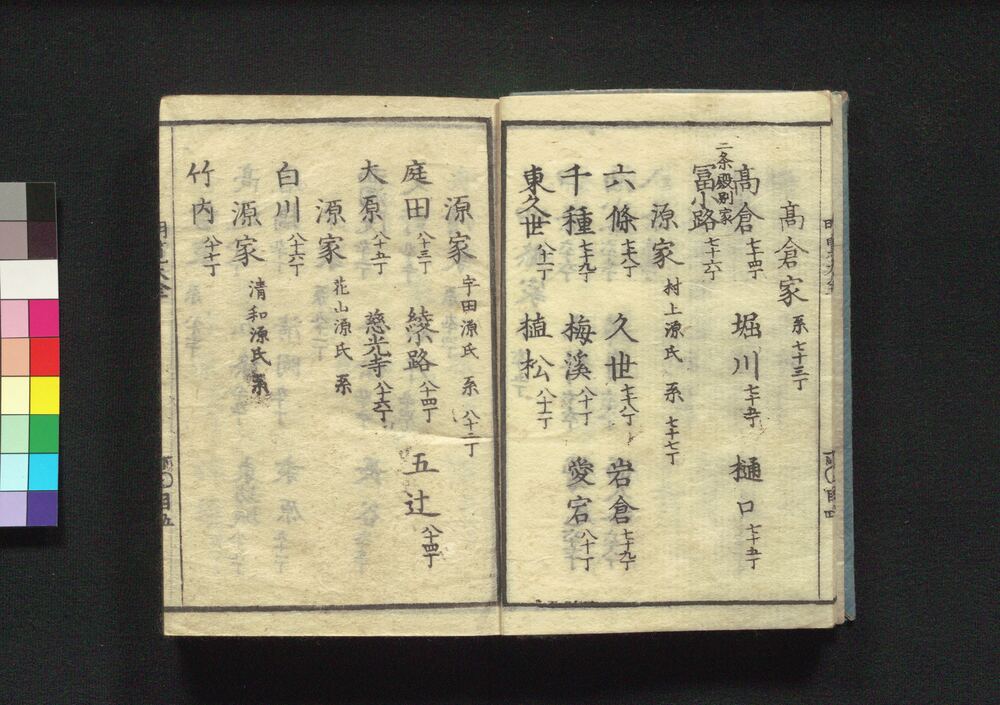 髙倉家 系七十三丁
髙倉七十四丁 堀川七十五丁 樋口七十五丁
二条殿別家
冨小路七十六丁
源家 村上源氏 系 七十七丁
六條七十八丁 久世七十八丁 岩倉七十九丁
千種七十九丁 梅溪八十丁 愛宕八十丁
東久世八十一丁 植松八十一丁
源家 宇田源氏 系 八十二丁
庭田八十三丁 綾路八十四丁 五辻八十四丁
大原八十五丁 慈光寺八十六丁
源家 花山源氏 系
白川八十六丁
源家 清和源氏 系
竹内八十七丁